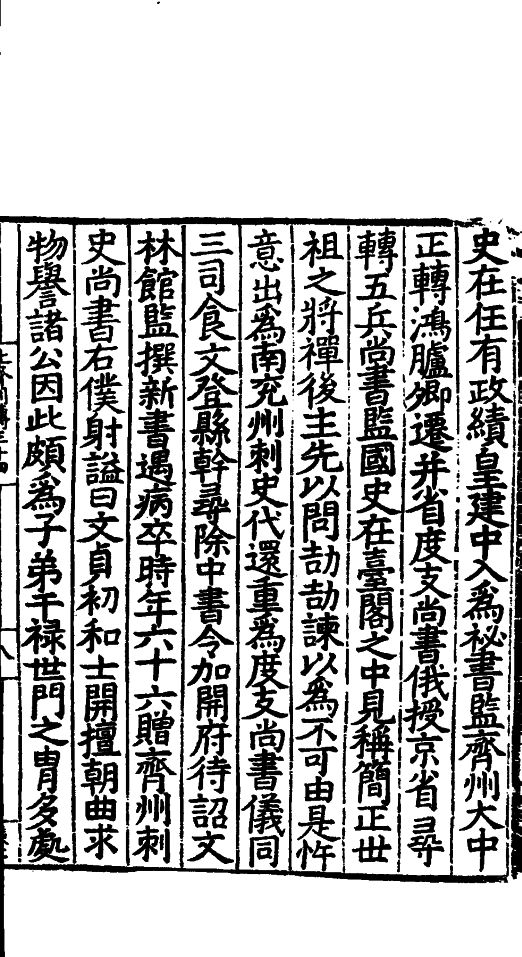 史在任有政績皇建中入爲秘書監齊州大中
正轉鴻臚卿遷并省度支尚書俄授京省尋
轉五兵尚書監國史在臺閣之中見稱簡正世
祖之將禪後主先以問劼劼諫以爲不可由是忤
意出爲南兖州刺史代還重爲度支尚書儀同
三司食文登縣幹尋除中書令加開府待詔文
林館監撰新書遇病卒時年六十六贈齊州刺
史尚書右僕射謚曰文貞初和士開擅朝曲求
物譽諸公因此頗爲子弟干禄世門之胄多處
八